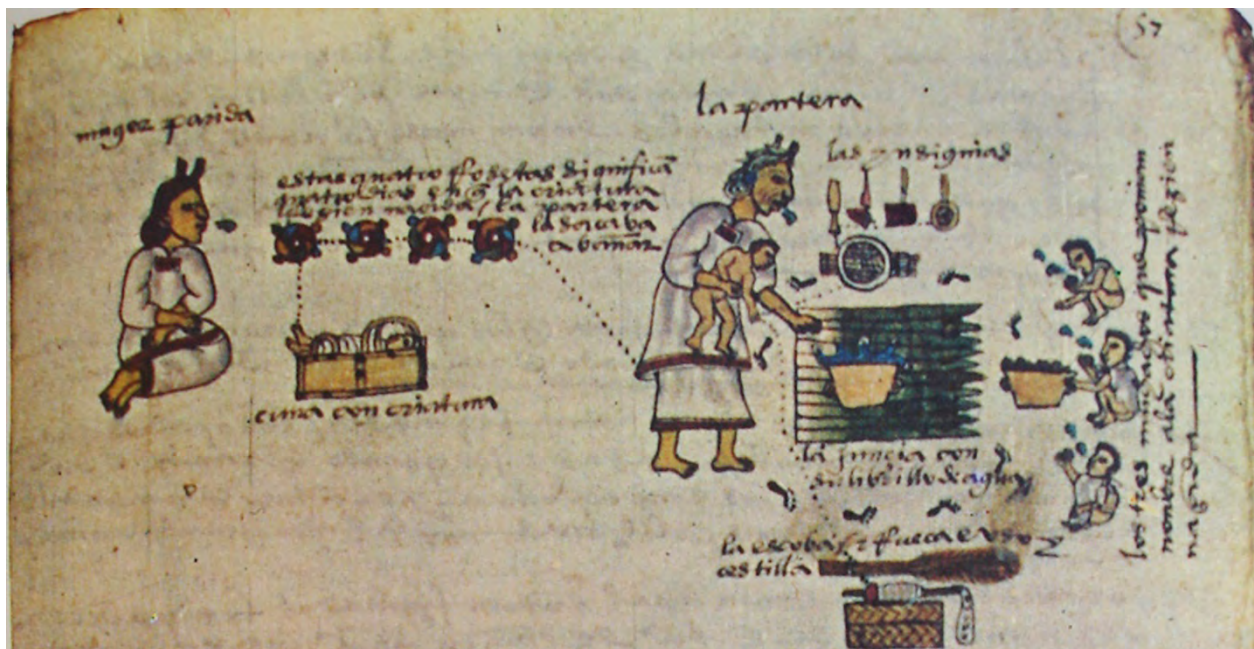 57
muger parida
estas quatro rosetas significā
quatro dias en q̄ la criatura
rezien naçida, la partera
la sacaba
a bañar
cuna con criatura
la partera
las ynsignias
la juncia con
su librillo de agua
la escoba, rueca e uso
çestilla
los tres muchachos que ponian
nonbre ala criatura rezien
naçida